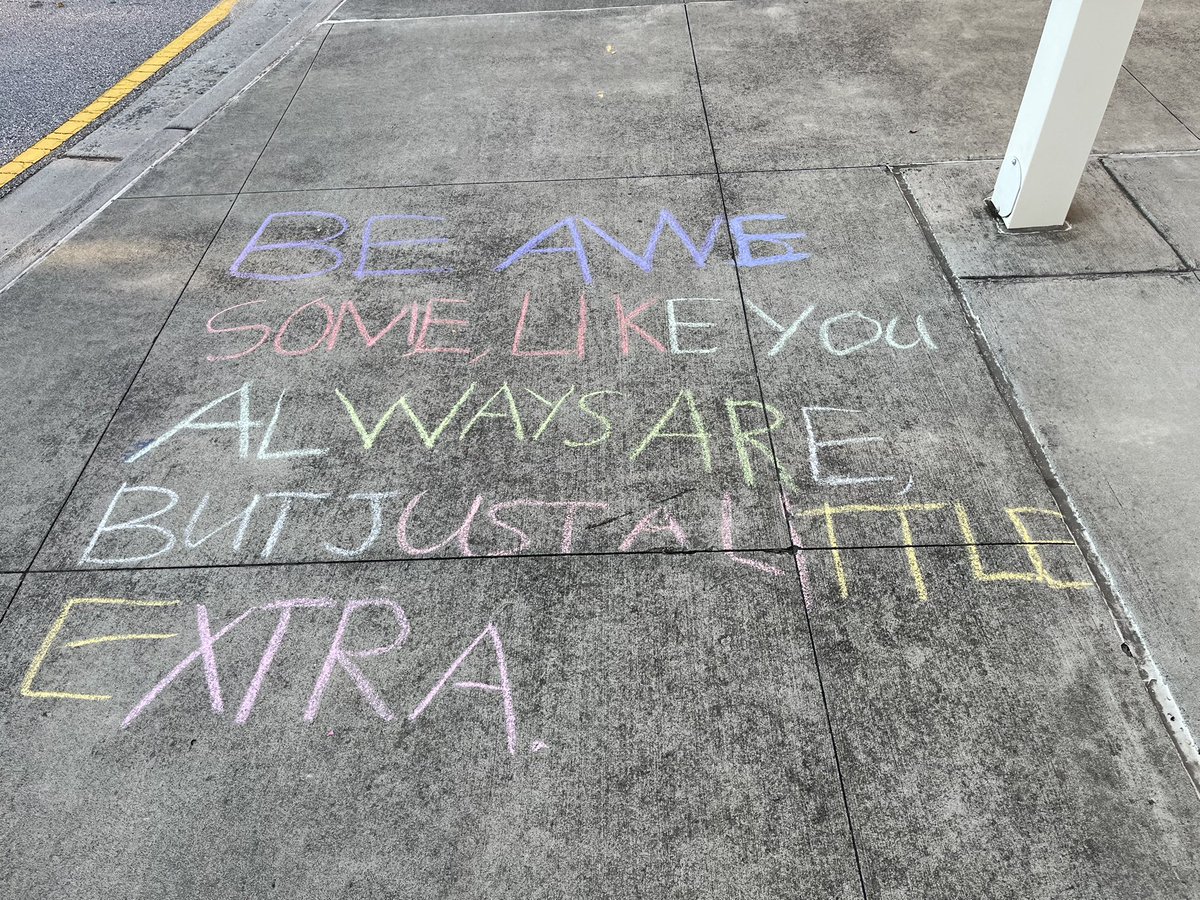 BE AWE
SOME, LIKE YOU
ALWAYS ARE,
BUT JUST A LITTLE
EXTRA.